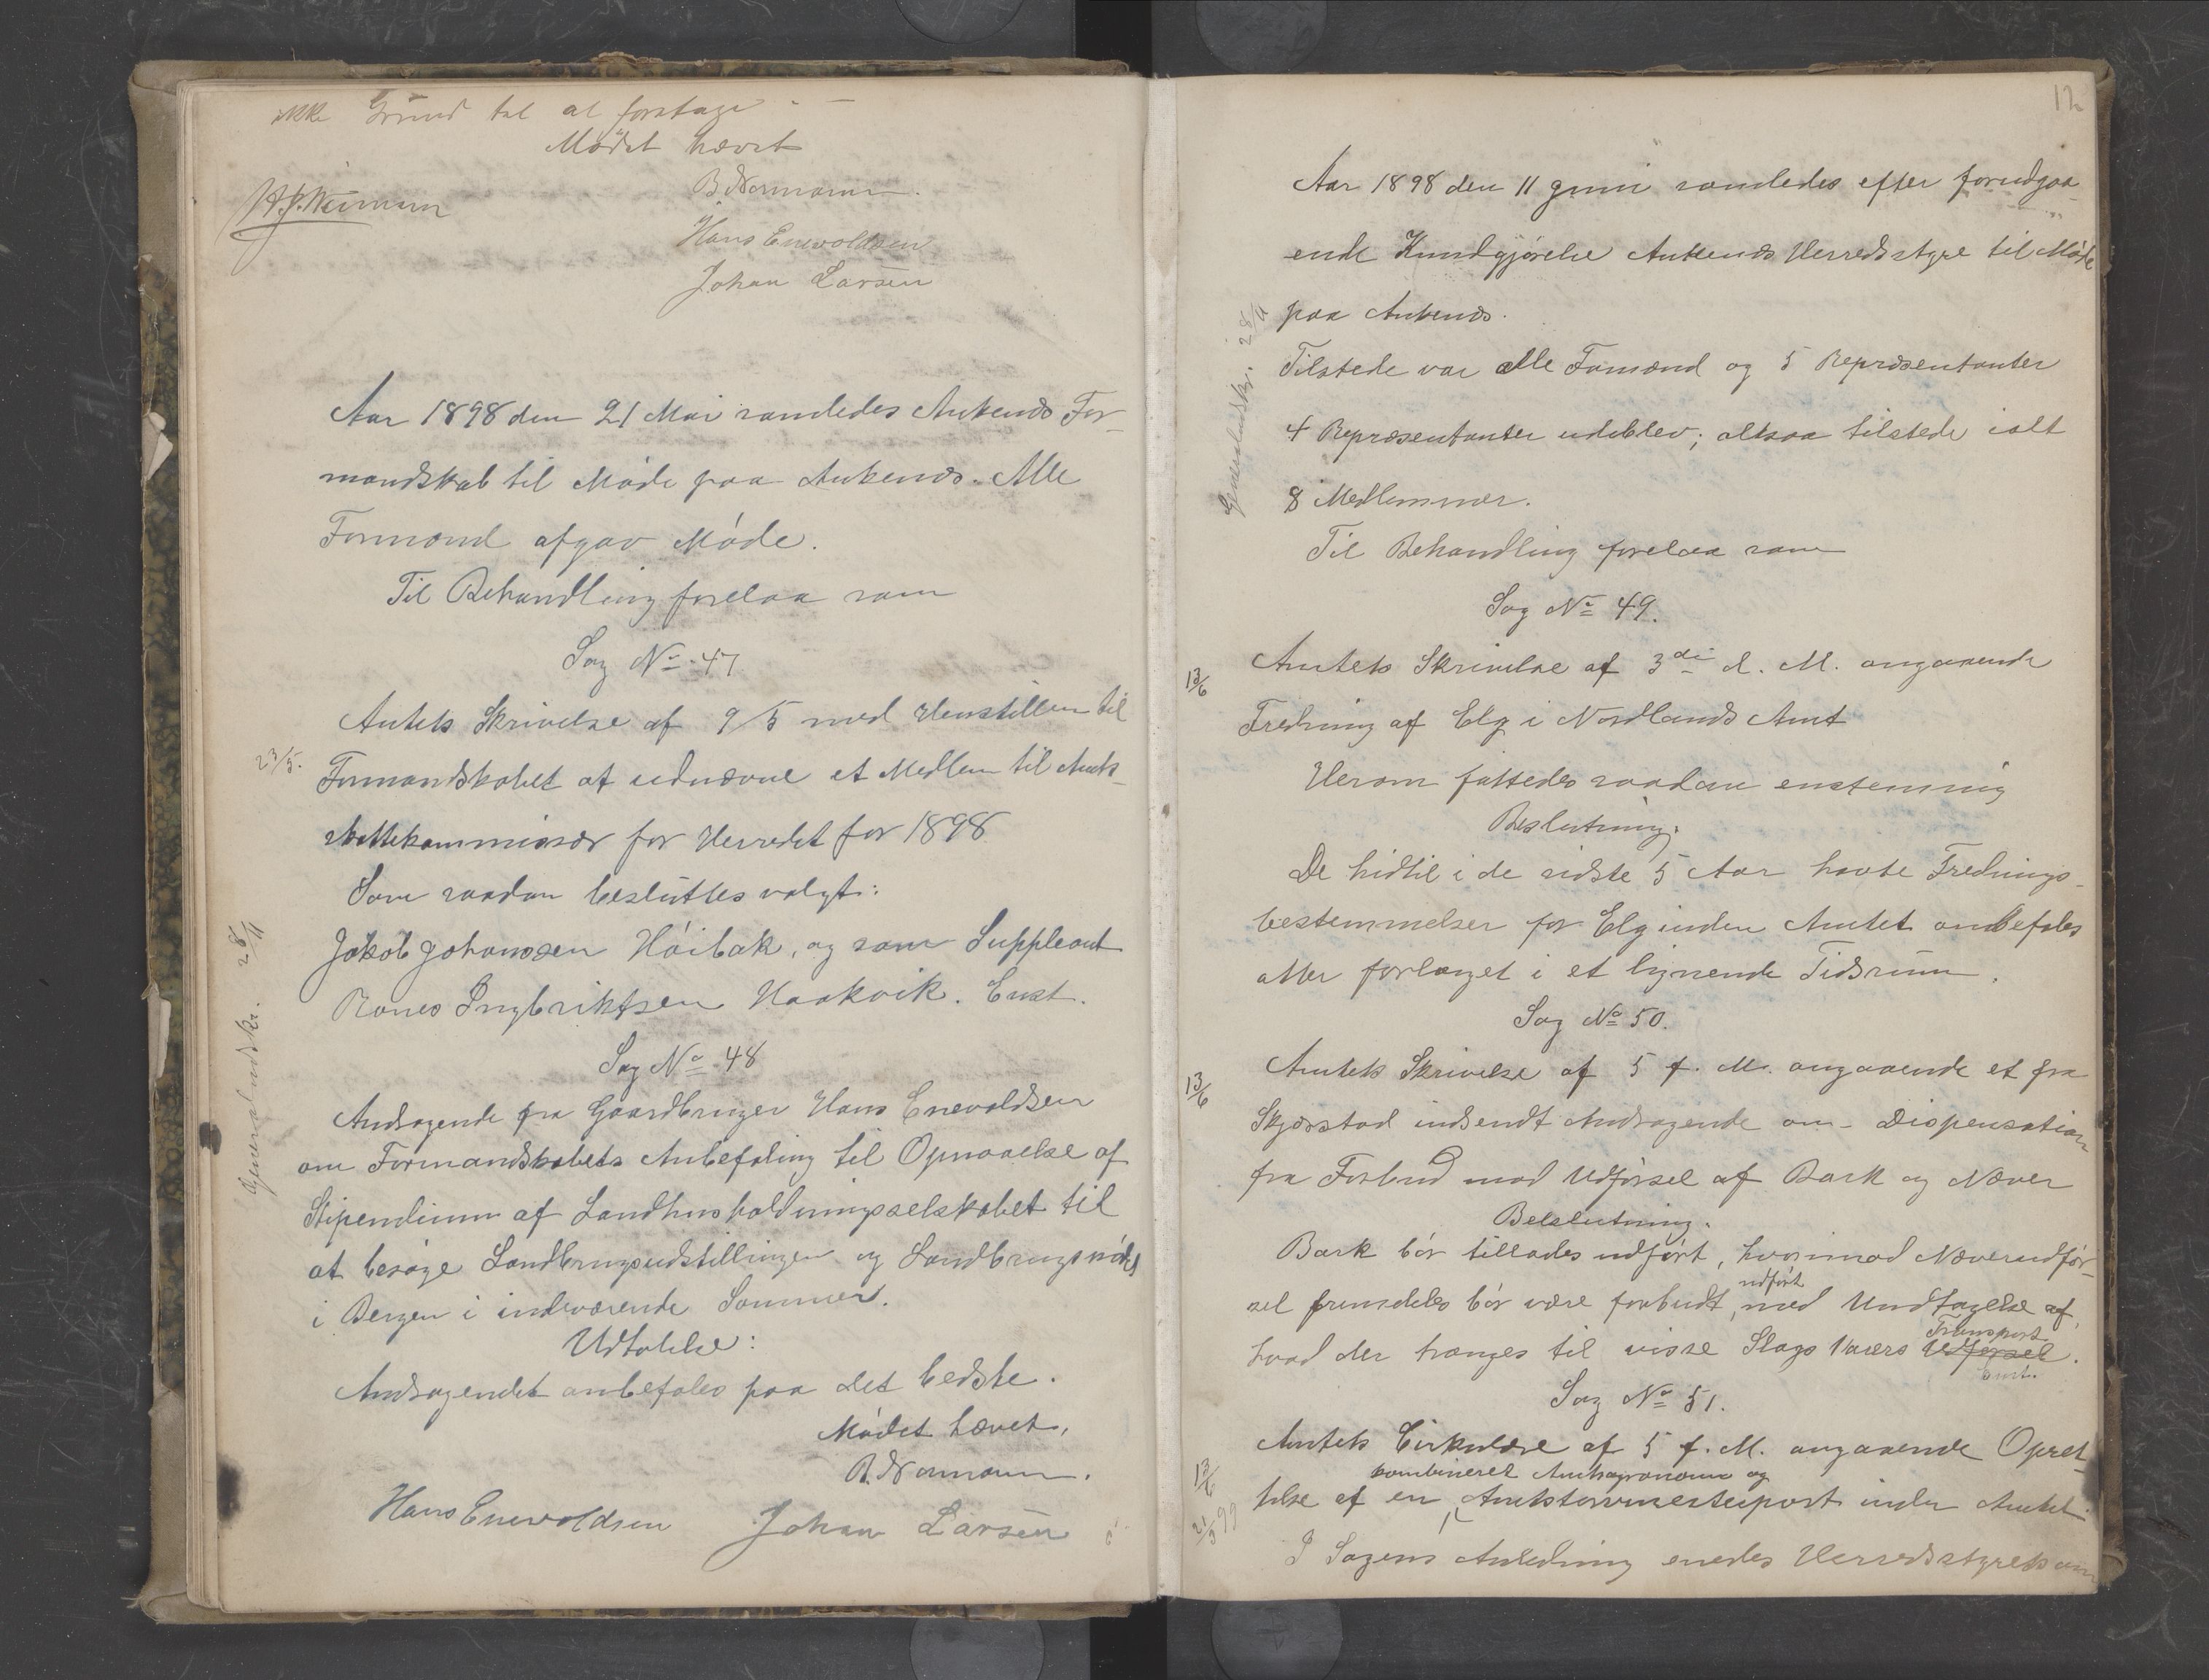 ikke Grund til at foretage
Mödet hævet
B. Normann.
H. J. Neumann
Hans Enevoldsen
Johan Larsen
Aar 1898 den 21 Mai samledes Ankenes For-
mandskab til Möde paa Ankenes. Alle
Formænd afgav Möde.
Til Behandling forelaa som
Sag No 47
Amtets Skrivelse af 9/5 med Henstillen til
23/5.
Formandskabet at udnævne et Medlem til Amts-
skattekommissær for Herredet for 1898
Som saadan besluttes valgt:
Jakob Johansen Höibak, og som Suppleant
Rones Ingbriktsen Haakvik. Enst.
Sag No 48
Andragende fra Gaardbruger Hans Enevoldsen
om Formandskabets Anbefaling til Opnaaelse af
Stipendium af Landhusholdningsselskabet til
at besöge Landbrugsudstillingen og Landbrugsmödet
i Bergen i indeværende Sommer.
Udtalelse:
Andragendet anbefales paa det bedste.
Mödet hævet.
B. Normann.
Hans Enevoldsen Johan Larsen
Genoraludskr. 28/11
12
Aar 1898 den 11 Juni samledes efter forudgaa-
ende Kundgjörelse Ankenes Herredsstyre til Möde
paa Ankenes.
Tilstede var alle Formænd og 5 Repræsentanter
4 Repræsentanter udeblev; altsaa tilstede ialt
8 Medlemmer.
Genoraludskr. 28/11
Til Behandling forelaa som
Sag No 49.
Amtets Skrivelse af 3die d. M. angaaende
13/6
Fredning af Elg i Nordlands Amt
Herom fattedes saadan enstemmig
Beslutning:
De hidtil i de sidste 5 Aar havte Frednings-
bestemmelser for Elg inden Amtet anbefales
atter forlænget i et lignende Tidsrum.
Sag No 50.
Amtets Skrivelse af 5 f. M. angaaende et fra
13/6
Skjerstad indsendt Andragende om Dispensation
fra Forbud mod Udförsel af Bark og Næver
Beslutning.
Bark bör tillades udfört, hvorimod Næverudför-
sel fremdeles bör være forbudt, udfört med Undtagelse af,
hvad der trænges til visse Slags Varers Udförsel Transport.
Enst.
Sag No 51.
Amtets Cirkulære af 5 f. M. angaaende Opret-
13/6
telse af en kombineret Amtsagronom og Amtstorvmesterpost inden Amtet.
21/3 99
I Sagens Anledning enedes Herredsstyrets om